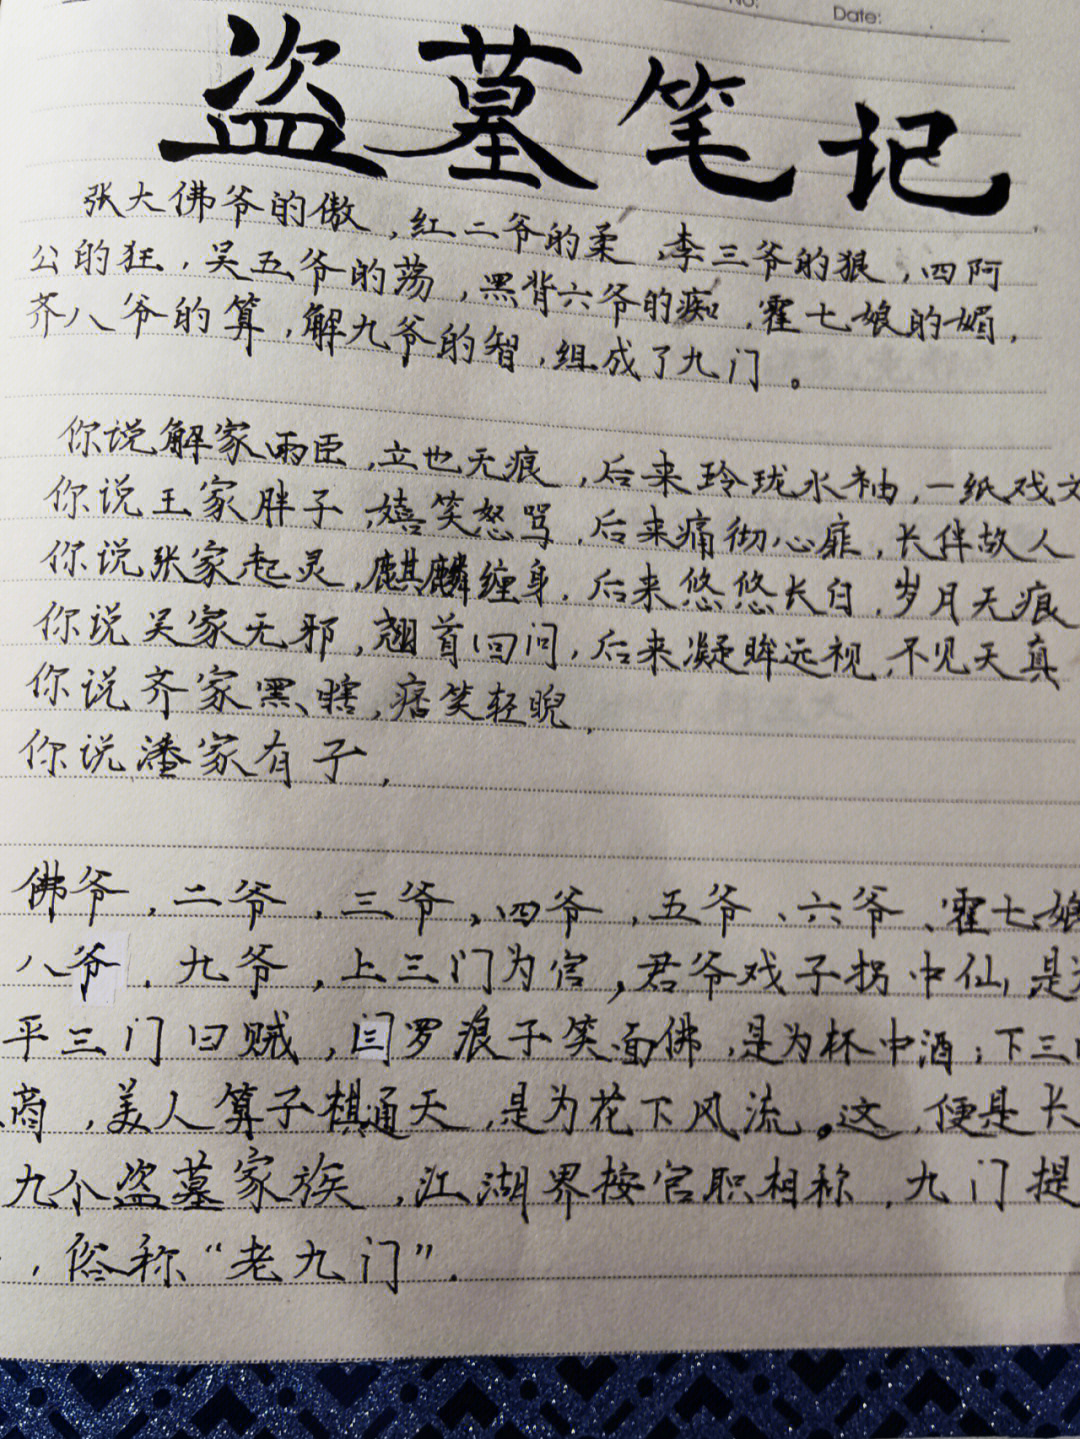 No. Date:
盗墓笔记
张大佛爷的傲,红二爷的柔,李三爷的狠,四阿
公的狂,吴五爷的荡,黑背六爷的痴,霍七娘的媚,
齐八爷的算,解九爷的智,组成了九门。
你说解家雨臣,立也无痕,后来玲珑水袖,一纸戏文
你说王家胖子,嬉笑怒骂,后来痛彻心扉,长伴故人
你说张家起灵,麒麟缠身,后来悠悠长白,岁月无痕
你说吴家无邪,翘首回问,后来凝眸远视,不见天真
你说齐家黑瞎,痞笑轻睨,
你说潘家有子,
佛爷,二爷,三爷,四爷,五爷、六爷、霍七娘
八爷,九爷,上三门为官,君爷戏子拐中仙,是
平三门曰贼,闫罗浪子笑面佛,是为杯中酒;下三
商,美人算子棋通天,是为花下风流。这,便是长
九个盗墓家族,江湖界按官职相称,九门提
,俗称“老九门”.